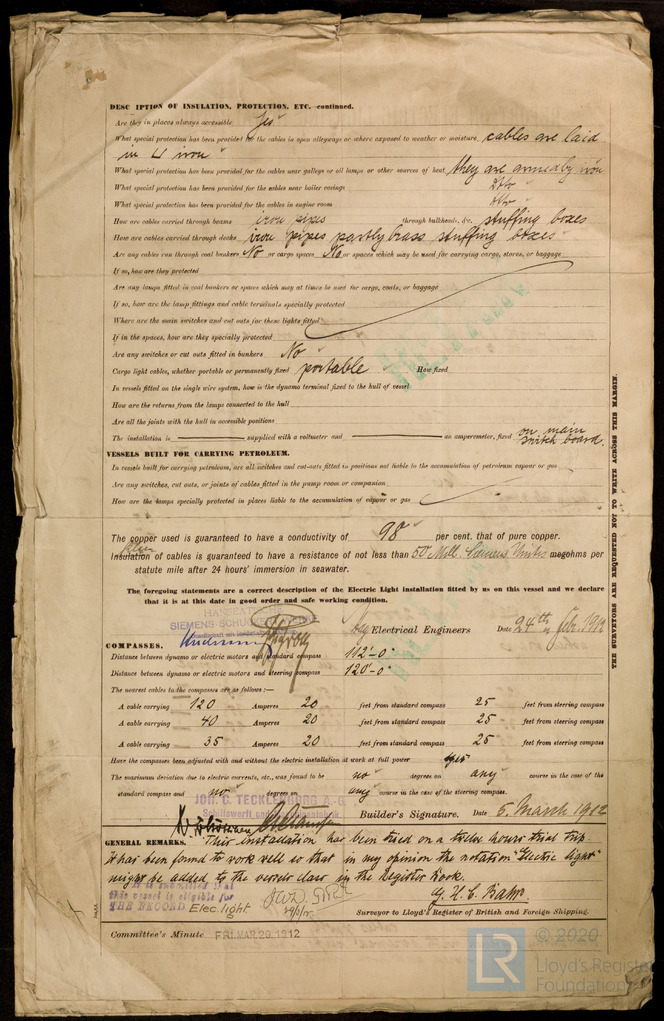 DESC IPTION OF INSULATION, PROTECTION, ETC.—continued.
Are they in places always accessible Yes
What special protection has been provided for the cables in open alleyways or where exposed to weather or moisture cables are laid
in iron
What special protection has been provided for the cables near galleys or oil lamps or other sources of heat they are armed by iron
What special protection has been provided for the cables near boiler casings
What special protection has been provided for the cables in engine room
How are cables carried through beams iron pipes through bulkheads, &c. stuffing boxes
How are cables carried through decks iron pipes partly brass stuffing boxes
Are any cables run through coal bunkers No or cargo spaces No or spaces which may be used for carrying cargo, stores, or baggage
If so, how are they protected
Are any lamps fitted in coal bunkers or spaces which may at times be used for cargo, coals, or baggage
If so, how are the lamp fittings and cable terminals specially protected
Where are the main switches and cut outs for these lights fitted
If in the spaces, how are they specially protected
Are any switches or cut outs fitted in bunkers No
Cargo light cables, whether portable or permanently fixed portable How fixed
In vessels fitted on the single wire system, how is the dynamo terminal fixed to the hull of vessel
How are the returns from the lamps connected to the hull
Are all the joints with the hull in accessible positions
The installation is supplied with a voltmeter and an amperemeter, fixed on main switch board.
VESSELS BUILT FOR CARRYING PETROLEUM.
In vessels built for carrying petroleum, are all switches and cut-outs fitted in positions not liable to the accumulation of petroleum vapour or gas
Are any switches, cut outs, or joints of cables fitted in the pump room or companion
How are the lamps specially protected in places liable to the accumulation of vapour or gas
THE SURVEYORS ARE REQUESTED NOT TO WRITE ACROSS THIS MARGIN.
The copper used is guaranteed to have a conductivity of 98 per cent. that of pure copper.
Insulation of cables is guaranteed to have a resistance of not less than 50 Mill. Siemens Units megohms per
statute mile after 24 hours' immersion in seawater.
The foregoing statements are a correct description of the Electric Light installation fitted by us on this vessel and we declare
that it is at this date in good order and safe working condition.
SIEMENS-SCHUCKERTWERKE
Electrical Engineers Date 24th Febr. 1912
COMPASSES.
Distance between dynamo or electric motors and standard compass 112'-0"
Distance between dynamo or electric motors and steering compass 120'-0"
The nearest cables to the compasses are as follows:—
A cable carrying 120 Amperes 20 feet from standard compass 25 feet from steering compass
A cable carrying 40 Amperes 20 feet from standard compass 25 feet from steering compass
A cable carrying 35 Amperes 20 feet from standard compass 25 feet from steering compass
Have the compasses been adjusted with and without the electric installation at work at full power yes
The maximum deviation due to electric currents, etc., was found to be no degrees on any course in the case of the
standard compass and no degrees on any course in the case of the steering compass.
JOH. C. TECKLENBORG A.-G.
Builder's Signature. Date 5. March 1912
GENERAL REMARKS. This installation has been tried on a twelve hours trial trip.
It has been found to work well so that in my opinion the notation "Electric light"
might be added to the vessels class in the Register Book.
It is submitted that
this vessel is eligible for
THE RECORD Elec. light.
Surveyor to Lloyd's Register of British and Foreign Shipping.
Committee's Minute FRI. MAR. 29. 1912
LR
© 2020
Lloyd's Register
Foundation